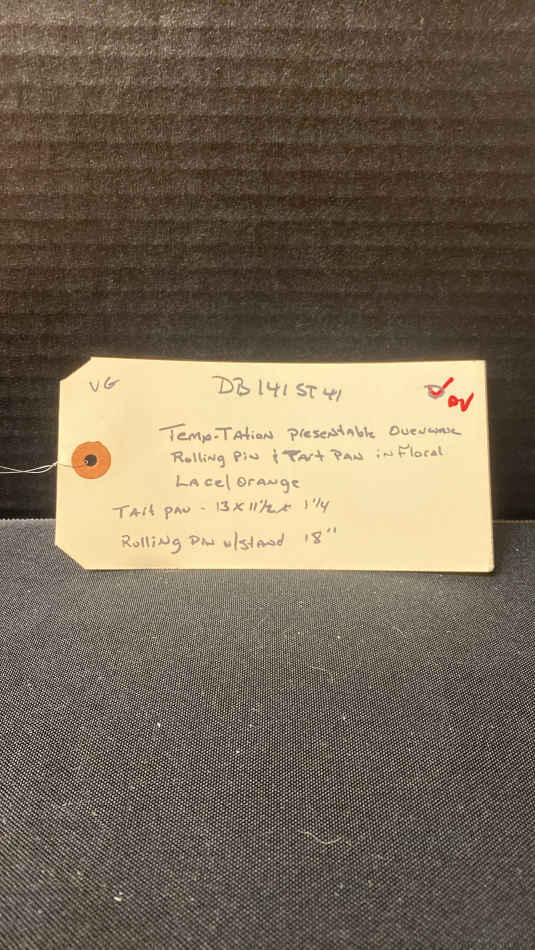 VG DB 141 ST 41
Temp-Tation presentable Ovenware
Rolling Pin & Tart Pan in Floral
Lace/Orange
Tart pan - 13 x 11 1/2 x 1 1/4
Rolling Pin w/stand 18"